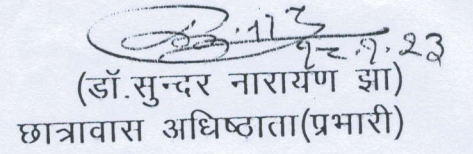 १८.१.२३
(डॉ.सुन्दर नारायण झा)
छात्रावास अधिष्ठाता(प्रभारी)